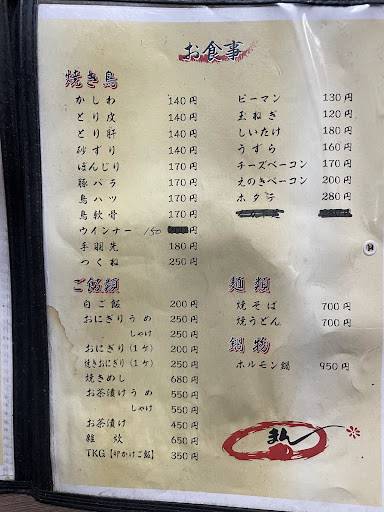 お食事
焼き鳥
かしわ 140円
とり皮 140円
とり肝 140円
砂ずり 140円
ぼんじり 170円
豚バラ 170円
鳥ハツ 170円
鳥軟骨 170円
ウインナー 150 円
手羽先 180円
つくね 250円
ピーマン 130円
玉ねぎ 120円
しいたけ 180円
うずら 160円
チーズベーコン 170円
えのきベーコン 200円
ホタテ 280円
ご飯類
白ご飯 200円
おにぎりうめ 250円
しゃけ 250円
おにぎり(1ケ) 200円
焼きおにぎり(1ケ) 250円
焼きめし 680円
お茶漬けうめ 550円
しゃけ 550円
お茶漬け 450円
雑炊 650円
TKG【卵かけご飯】 350円
麺類
焼そば 700円
焼うどん 700円
鍋物
ホルモン鍋 950円